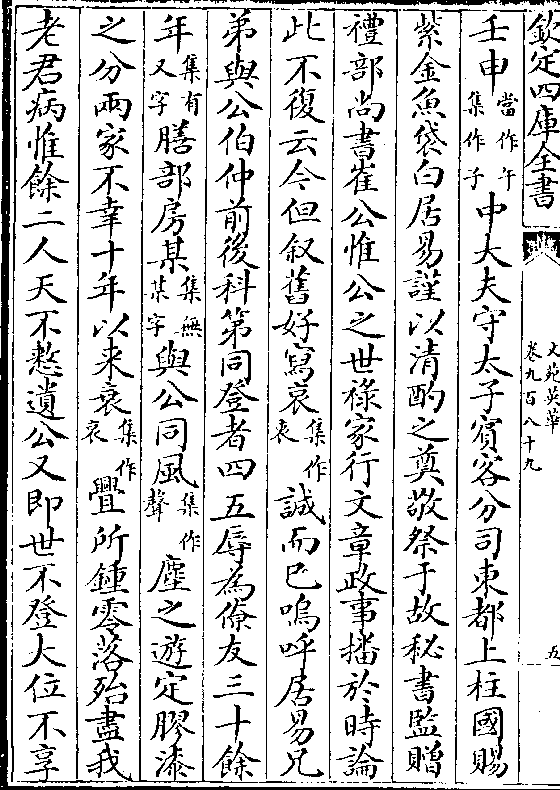 欽定四庫全書
文苑英華
卷九百八十九
五
壬申當作午集作子中大夫守太子賓客分司東都上柱國賜
紫金魚袋白居易謹以清酌之奠敬祭于故秘書監贈
禮部尚書崔公惟公之世禄家行文章政事播於時論
此不復云今但叙舊好寫哀集作衷誠而已嗚呼居易兄
弟與公伯仲前後科第同登者四五辱為僚友三十餘
年集有又字膳部房某集無某字與公同風集作聲塵之遊定膠漆
之分兩家不幸十年以来衰集作衺舋所鍾零落殆盡我
老君病惟餘二人天不憗遺公又即世不登大位不享